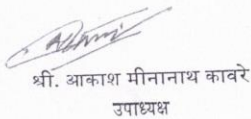 श्री. आकाश मीनानाथ कावरे
उपाध्यक्ष